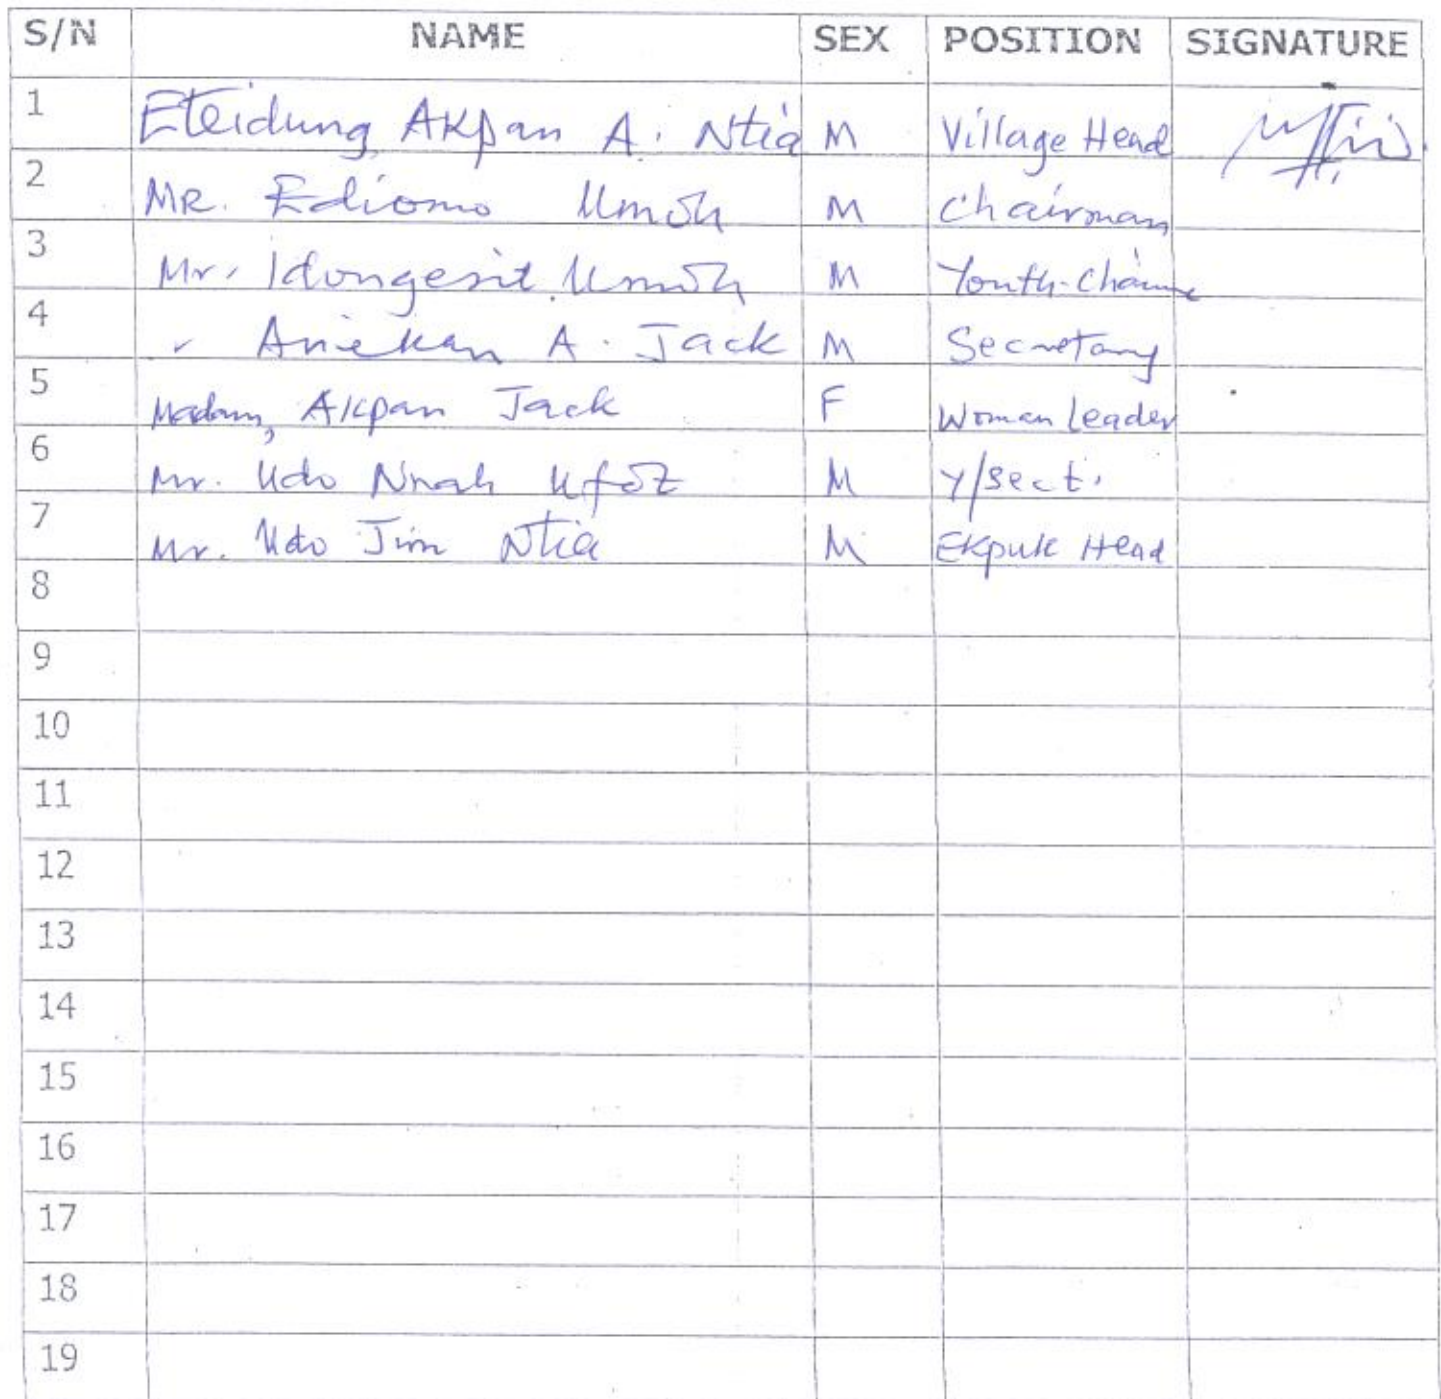 S/N NAME SEX POSITION SIGNATURE
1 Eteidung Akpan A. Ntia M Village Head
2 MR. Ediomo Umoh M Chairman
3 Mr. Idongesit Umoh M Youth-Chairm
4 Aniekan A. Jack M Secretary
5 Madam, Akpan Jack F Woman Leader
6 Mr. Udo Nnah Ufot M Y/sect.
7 Mr. Udo Jim Ntia M Ekpuk Head
8
9
10
11
12
13
14
15
16
17
18
19